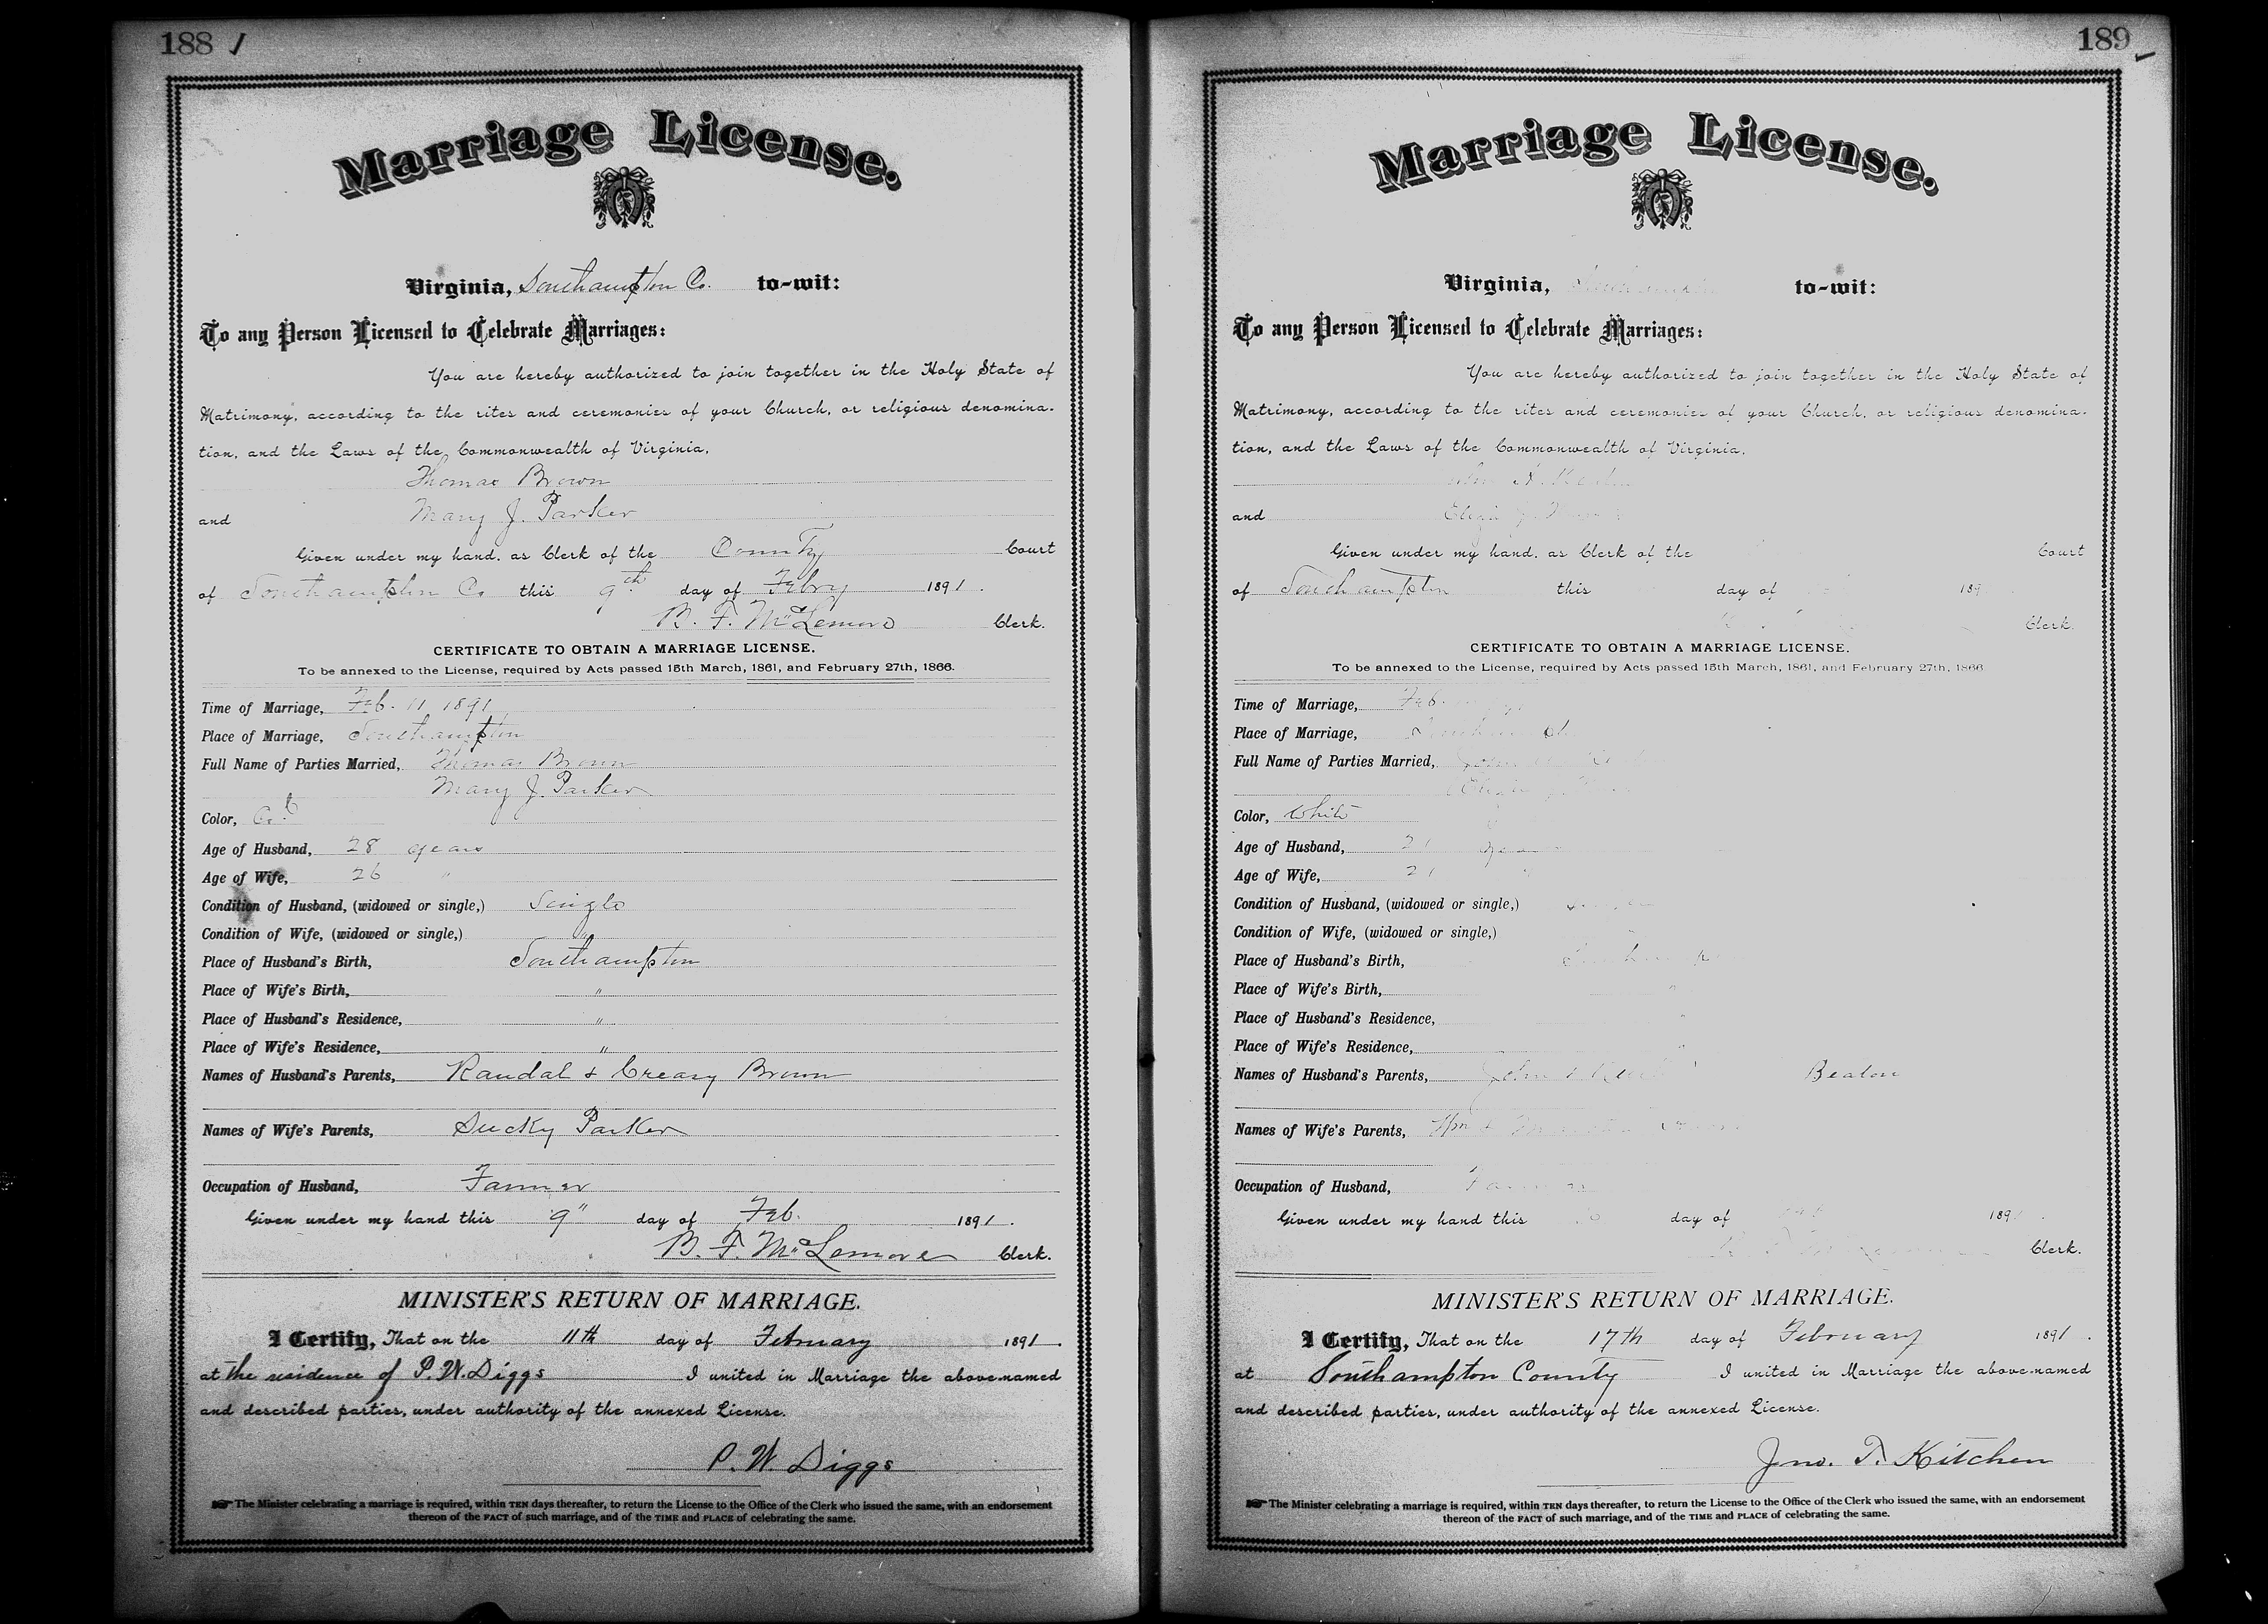 188
Marriage License.
Virginia, Southampton Co. to-wit:
To any Person Licensed to Celebrate Marriages:
You are hereby authorized to join together in the Holy State of
Matrimony, according to the rites and ceremonies of your Church, or religious denomina-
tion, and the Laws of the Commonwealth of Virginia,
Thomas Brown
and Mary J. Parker
Given under my hand, as Clerk of the County Court
of Southampton Co this 9th day of Febry 1891.
B. F. McLemore Clerk.
CERTIFICATE TO OBTAIN A MARRIAGE LICENSE.
To be annexed to the License, required by Acts passed 15th March, 1861, and February 27th, 1866.
Time of Marriage, Feb. 11, 1891
Place of Marriage, Southampton
Full Name of Parties Married, Thomas Brown
Mary J. Parker
Color, Cold
Age of Husband, 28 years
Age of Wife, 26 "
Condition of Husband, (widowed or single,) Single
Condition of Wife, (widowed or single,) "
Place of Husband's Birth, Southampton
Place of Wife's Birth, "
Place of Husband's Residence, "
Place of Wife's Residence, "
Names of Husband's Parents, Randal & Creasy Brown
Names of Wife's Parents, Sucky Parker
Occupation of Husband, Farmer
Given under my hand this 9" day of Feb. 1891.
B. F. McLemore Clerk.
MINISTER'S RETURN OF MARRIAGE.
I Certify, That on the 11th day of February 1891.
at the residence of P. W. Diggs I united in Marriage the above-named
and described parties, under authority of the annexed License.
P. W. Diggs
The Minister celebrating a marriage is required, within TEN days thereafter, to return the License to the Office of the Clerk who issued the same, with an endorsement
thereon of the FACT of such marriage, and of the TIME and PLACE of celebrating the same.
189
Marriage License.
Virginia, to-wit:
To any Person Licensed to Celebrate Marriages:
You are hereby authorized to join together in the Holy State of
Matrimony, according to the rites and ceremonies of your Church, or religious denomina-
tion, and the Laws of the Commonwealth of Virginia,
and Eliza J.
Given under my hand, as Clerk of the Court
of Southampton this day of 189
Clerk.
CERTIFICATE TO OBTAIN A MARRIAGE LICENSE.
To be annexed to the License, required by Acts passed 15th March, 1861, and February 27th, 1866
Time of Marriage, Feb.
Place of Marriage,
Full Name of Parties Married, John
Color, White
Age of Husband, 21
Age of Wife, 21 "
Condition of Husband, (widowed or single,)
Condition of Wife, (widowed or single,)
Place of Husband's Birth,
Place of Wife's Birth, "
Place of Husband's Residence, "
Place of Wife's Residence, "
Names of Husband's Parents, John & Beaton
Names of Wife's Parents, Wm &
Occupation of Husband, Farmer
Given under my hand this day of 189
Clerk.
MINISTER'S RETURN OF MARRIAGE.
I Certify, That on the 17th day of February 1891.
at Southampton County I united in Marriage the above-named
and described parties, under authority of the annexed License.
Jno. T. Kitchen
The Minister celebrating a marriage is required, within TEN days thereafter, to return the License to the Office of the Clerk who issued the same, with an endorsement
thereon of the FACT of such marriage, and of the TIME and PLACE of celebrating the same.